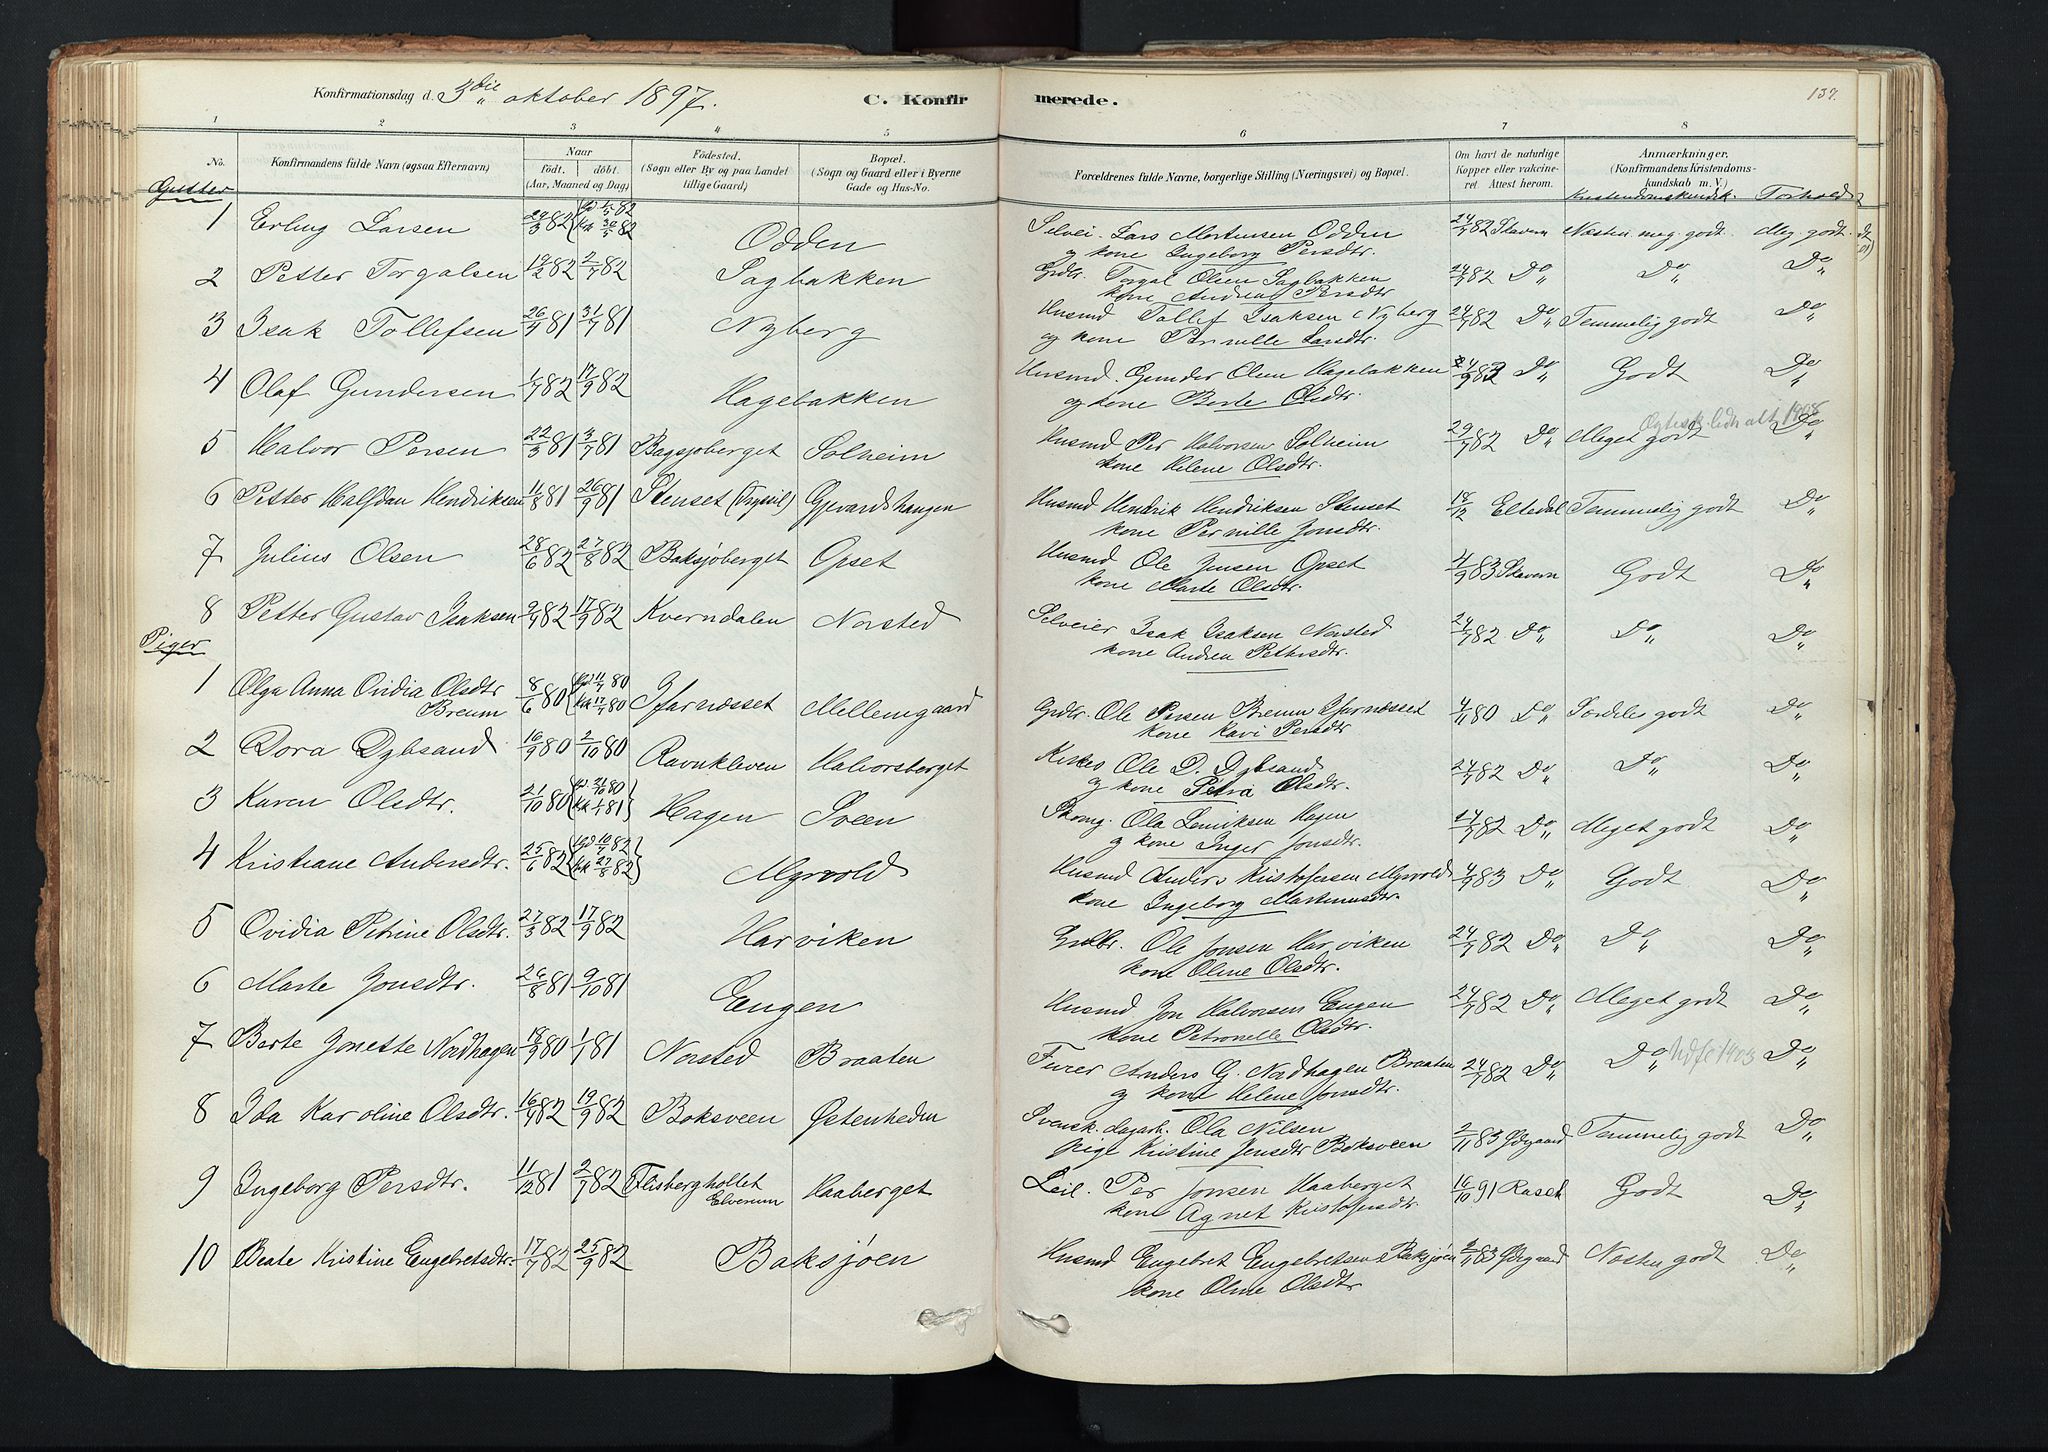 Konfirmationsdag d. 3die oktober 1897. C. Konfirmerede. 137.
1 2 3 4 5 6 7 8
No. Konfirmandens fulde Navn (ogsaa Efternavn) Naar født. døbt. (Aar, Maaned og Dag) Fødested. (Sogn eller By og paa Landet tillige Gaard) Bopæl. (Sogn og Gaard eller i Byerne Gade og Hus-No. Forældrenes fulde Navne, borgerlige Stilling (Næringsvei) og Bopæl. Om havt de naturlige Kopper eller vakcineret. Attest herom. Anmærkninger. (Konfirmandens Kristendomskundskab m. V.)
Kristendomskundsk. Forhold
Gutter
1 Erling Larsen 29/3 82 (hd 1/5 82 kk 30/5 82 Odden Selvei. Lars Mortensen Odden 24/7 82 Stavern Næsten meg. godt. Mg. godt.
og kone Ingeborg Persdtr.
2 Petter Torgalsen 19/2 82 2/7 82 Sagbakken Grdbr. Torgal Olsen Sagbakken 24/7 82 Do Do Do
kone Andrea Persdtr
3 Isak Tollefsen 26/4 81 31/7 81 Nyberg Husmd Tollef Isaksen Nyberg 24/7 82 Do Temmelig godt Do
og kone Pernille Larsdtr.
4 Olaf Gundersen 1/7 82 17/9 82 Hagebakken Husmd. Gunder Olsen Hagebakken 4/9 83 Do Godt Do
og kone Berte Olsdtr.
5 Halvor Persen 22/3 81 3/7 81 Bagsjøberget Solheim Husmd Per Halvorsen Solheim 29/7 82 Do Meget godt Do
kone Helene Olsdtr.
6 Petter Halfdan Hendriksen 11/8 81 26/9 81 Stenset (Trysil) Gjevardshaugen Husmd Hendrik Hendriksen Stenset 18/12 Eltedal Temmelig godt Do
kone Pernille Jonsdtr.
7 Julius Olsen 28/6 82 27/8 82 Baksjøberget Opset Husmd Ole Jensen Opset 4/9 83 Stavern Godt Do
kone Marte Olsdtr.
8 Petter Gustav Isaksen 9/7 82 17/9 82 Kverndalen Norsted Selveier Isak Isaksen Norsted 24/7 82 Do Do Do
kone Andrea Pettersdtr.
Piger
1 Olga Anna Ovidia Olsdtr 8/6 80 (hd 11/7 80 kk 17/7 80 Ifarnæsset Mellemgaard Grdbr. Ole Persen Breum Ifarnæsset 4/11 80 Do Særdeles godt Do
Breum kone Kari Persdtr
2 Dora Dybsand 16/9 80 2/10 80 Ravnkleven Halvorsberget Ole D. Dybsand 24/7 82 Do Do Do
og kone Petra Olsdtr.
3 Karen Olsdtr. 21/10 80 (hd 21/10 80 kk 1/1 81) Hagen Sveen Skomg. Ola Lenriksen Hagen 24/7 82 Do Meget godt Do
og kone Inger Jonsdtr.
4 Kristiane Andersdtr. 25/6 82 (hd 10/7 82 kk 27/8 82) Myrvold Husmd Anders Kristofersen Myrvold 4/9 83 Do Godt Do
kone Ingeborg Martinusdtr.
5 Ovidia Petrine Olsdtr. 27/3 82 17/9 82 Harviken Grdbr. Ole Jonsen Harviken 24/7 82 Do Do Do
kone Oline Olsdtr.
6 Marte Jonsdtr. 26/8 81 9/10 81 Engen Husmd Jon Halvorsen Engen 24/7 82 Do Meget godt Do
kone Petronelle Olsdtr.
7 Berte Jonette Nordhagen 18/9 80 1/1 81 Norsted Braaten Furer Anders G. Nordhagen Braaten 24/7 82 Do Do Udfl 1903 Do
og kone Helene Jonsdtr.
8 Ida Karoline Olsdtr. 16/7 82 19/9 82 Boksveen Østenheden Svensk. dagarb. Ola Nilsen 2/11 83 Ødegaard Temmelig godt Do
pige Kristine Jensdtr Boksveen
9 Ingeborg Persdtr. 11/12 81 2/7 82 Flisberghollet Haaberget Leil. Per Jonsen Haaberget 16/10 91 Raset Godt Do
Elverum kone Agnet Kristofersdtr.
10 Beate Kristine Engebretsdtr. 17/7 82 25/9 82 Baksjøen Husmd Engebret Engebretsen Baksjøen 2/11 83 Ødegaard Næsten godt Do
kone Oline Olsdtr